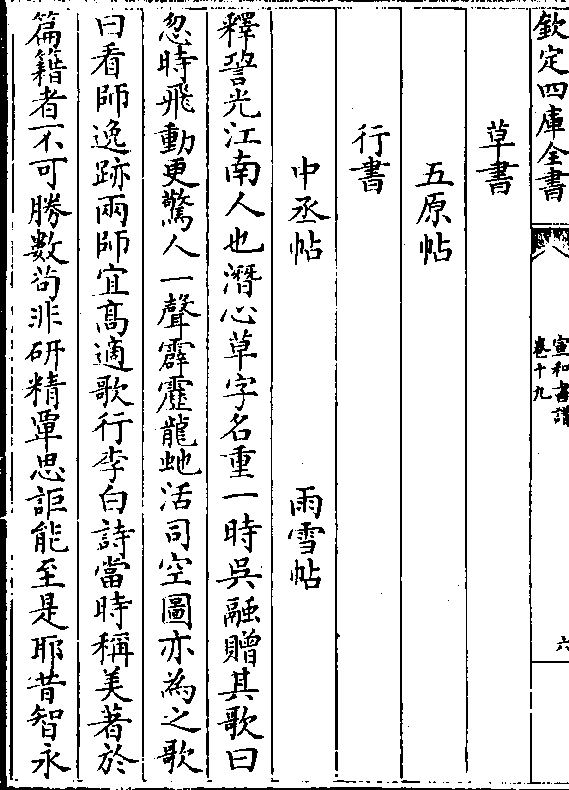 欽定四庫全書
宣和書譜
卷十九
六
草書
五原帖
行書
中丞帖 雨雪帖
釋䛒光江南人也潛心草字名重一時吳融贈其歌曰
忽時飛動更驚人一聲霹靂龍虵活司空圖亦為之歌
曰看師逸跡兩師宜高適歌行李白詩當時稱美著於
篇籍者不可勝數茍非研精覃思詎能至是耶昔智永